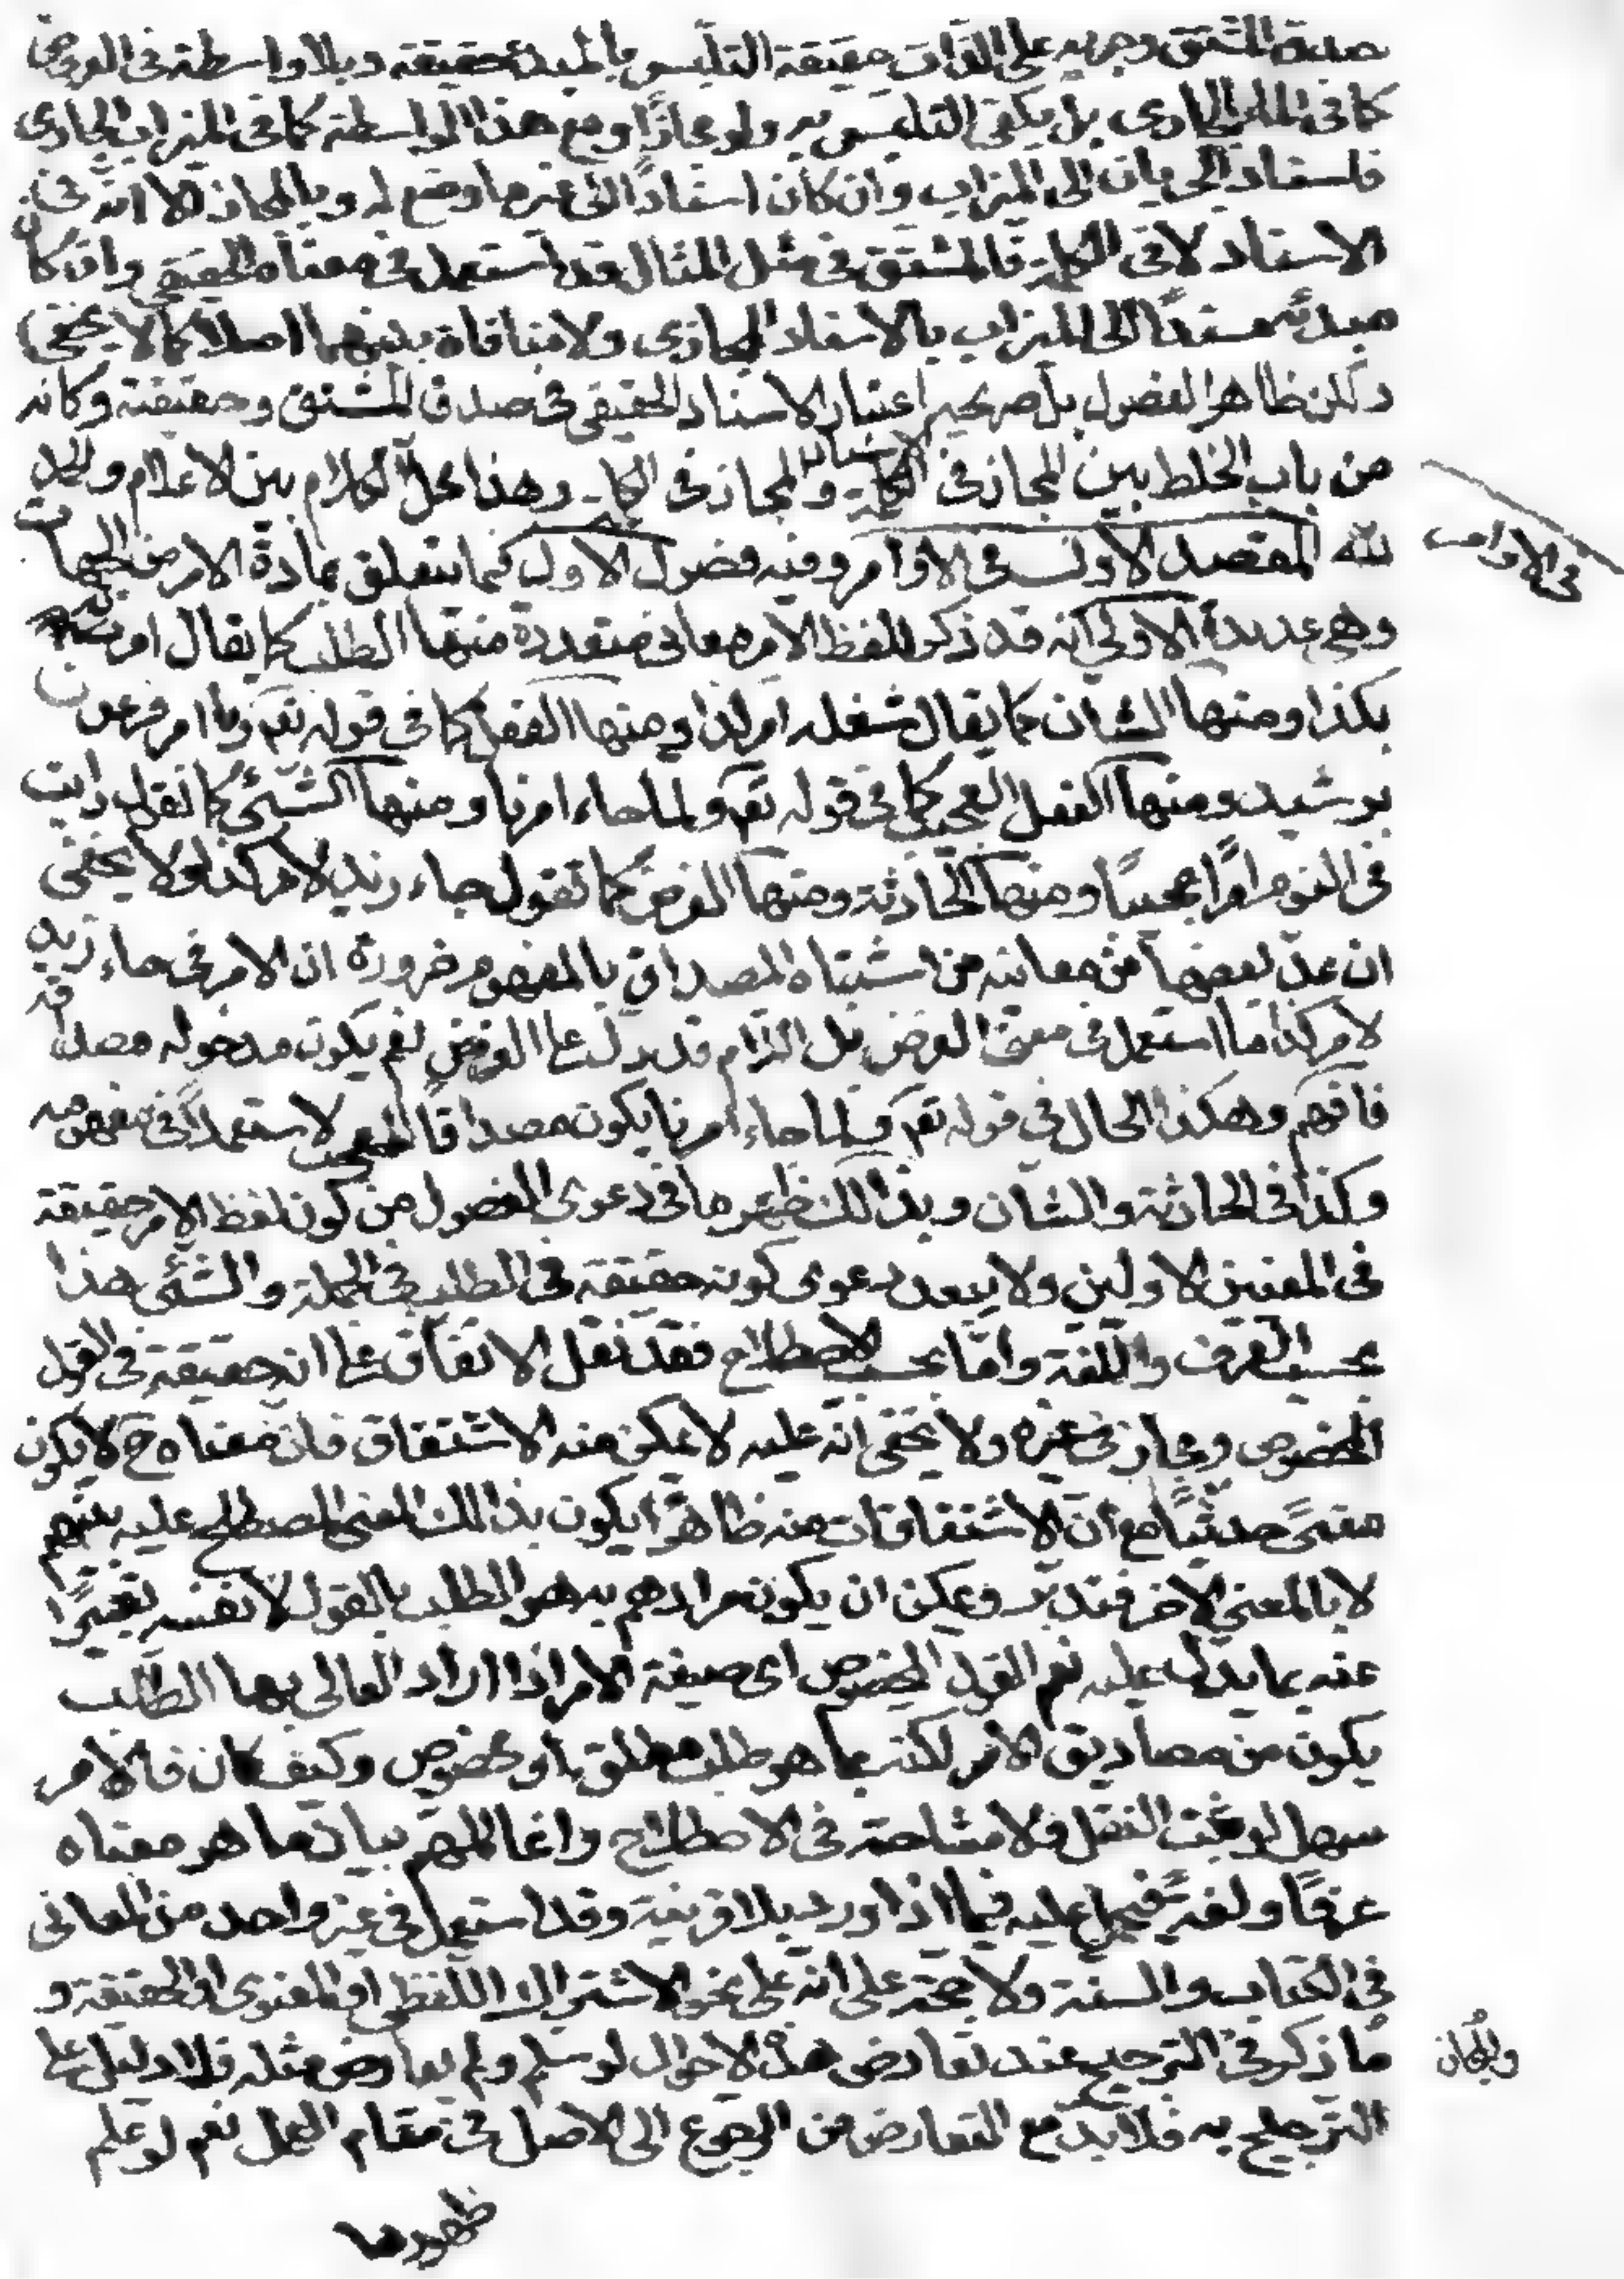 صدق المشتق وجريه على الذات حقيقة التلبس بالمبدء حقيقة وبلا واسطة فى العروض
كما فى الماء الجارى بل يكفى التلبس به ولو مجازًا ومع هذا الواسطة كما فى الميزاب الجارى
فاسناد الجريان الى الميزاب وان كان اسنادًا الى غير ما وضع له وبالمجاز الا انه فى
الاسناد لا فى الكلمة فالمشتق فى مثل المثال قد استعمل فى معناه الحقيقى وان كان
مبدئه مسندًا الى الميزاب بالاسناد المجازى ولا منافاة بينهما اصلا كما لا يخفى
ولكن ظاهر الفصول بل صريحه اعتبار الاسناد الحقيقى فى صدق المشتق وحقيقة وكانه
من باب الخلط بين المجاز فى الاسناد والمجاز فى الكلمة وهذا محل الكلام بين الاعلام والحمد
لله المقصد الاول فى الاوامر وفيه فصول الاول فيما يتعلق بمادة الامر من الجهات
فى الاوامر
وهى عديدة الاولى انه قد ذكر للفظ الامر معانى متعددة منها الطلب كما يقال امره
بكذا ومنها الشان كما يقال شغله امر كذا ومنها الفعل كما فى قوله تعه وما امر فرعون
برشيد ومنها الفعل العجيب كما فى قوله تعه ولما جاء امرنا ومنها الشئ كما تقول رايت
فى اليوم امرًا عجيبًا ومنها الحادثة ومنها الغرض كما تقول جاء زيد لامر كذا ولا يخفى
ان عد بعضها من معانيه من اشتباه المصداق بالمفهوم ضرورة ان الامر فى جاء زيد
لامر كذا ما استعمل فى معنى الغرض بل اللام قد دل على الغرض نعم يكون مدخوله مصداقه
فافهم وهكذا الحال فى قوله تعه ولما جاء امرنا يكون مصداقًا للعجيب لا مستعملًا فى مفهومه
وكذا فى الحادثة والشان وبذالك ظهر ما فى دعوى الفصول من كون لفظ الامر حقيقة
فى المعنيين الاولين ولا يبعد دعوى كونه حقيقة فى الطلب فى الجملة والشئ هذا
بحسب العرف واللغة واما بحسب الاصطلاح فقد نقل الاتفاق على انه حقيقة فى القول
المخصوص ومجاز فى غيره ولا يخفى انه عليه لا يمكن منه الاشتقاق فان معناه ح لا يكون
معنىً حدثيًا مع ان الاشتقاقات منه ظاهرًا يكون بذالك المعنى المصطلح عليه بينهم
لا بالمعنى الاخر فتدبر ويمكن ان يكون مرادهم به هو الطلب بالقول لا نفسه تعبيرًا
عنه بما يدل عليه نعم القول المخصوص اى صيغة الامر اذا اراد العالى بها الطلب
يكون من مصاديق الامر لكنه بما هو طلب مطلق او مخصوص وكيف كان فالامر
سهل لو ثبت النقل ولا مشاحة فى الاصطلاح وانما المهم بيان ما هو معناه
عرفًا ولغةً فيحمل عليه فيما اذا ورد بلا قرينة وقد استعمل فى غير واحد من المعانى
فى الكتاب والسنة ولا حجة على انه على نحو الاشتراك اللفظى او المعنوى او الحقيقة و
والمجاز
ما ذكر فى الترجيح عند تعارض هذه الاحوال لو سلم ولم يعارض مثله فلا دليل على
الترجيح به فلا بد مع التعارض من الرجوع الى الاصل فى مقام العمل نعم لو علم
ظهوره ما